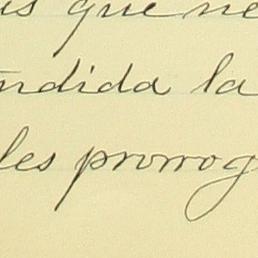 us que ne
ndida la
les prorrog